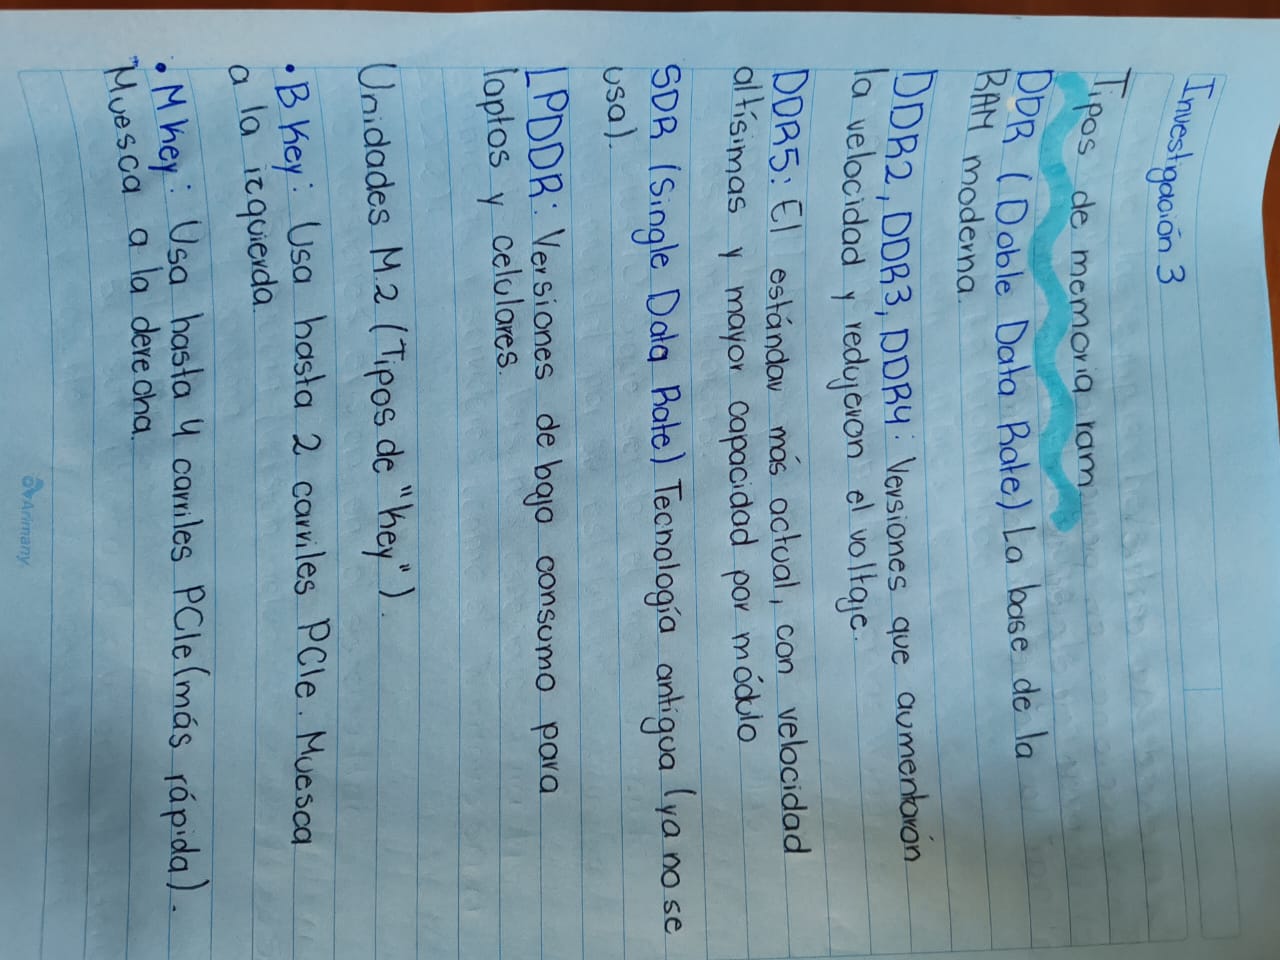 Investigación 3
Tipos de memoria ram
DDR (Doble Data Rate) La base de la
RAM moderna.
DDR2, DDR3, DDR4: Versiones que aumentarón
la velocidad y redujeron el voltaje.
DDR5: El estándar más actual, con velocidad
altísimas y mayor capacidad por módulo
SDR (Single Data Rate) Tecnología antigua (ya no se
usa).
LPDDR: Versiones de bajo consumo para
laptos y celulares.
Unidades M.2 (Tipos de "key").
• B key: Usa hasta 2 carriles PCIe. Muesca
a la izquierda.
• M key: Usa hasta 4 carriles PCIe (más rápida).
Muesca a la derecha.
Arimany